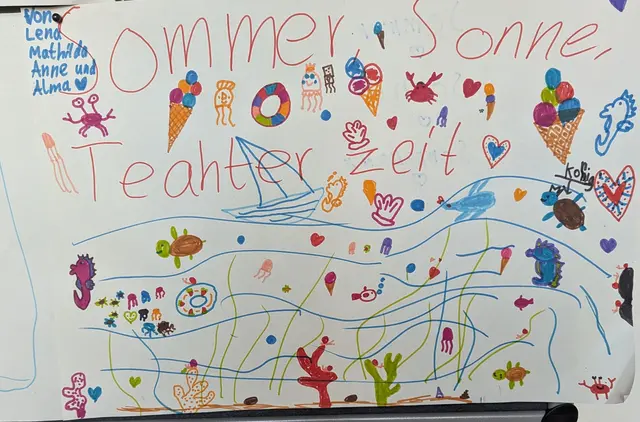 Von
Lena
Mathilda
Anne und
Alma
Sommer, Sonne,
Teahterzeit